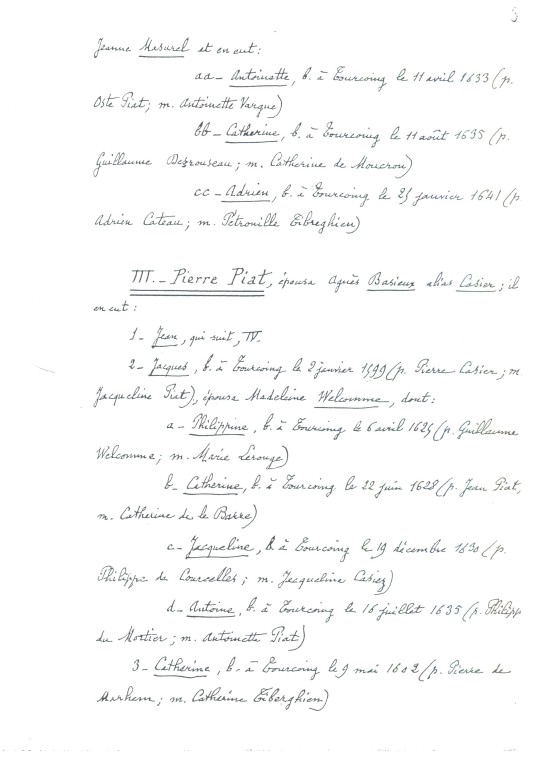 3
Jeanne Masurel et en eut :
aa - Antoinette, b. à Tourcoing le 11 avril 1633 (p.
Oste Piat ; m. Antoinette Varque)
bb - Catherine, b. à Tourcoing le 11 août 1635 (p.
Guillaume Desrouseau ; m. Catherine de Moucron)
cc - Adrien, b. à Tourcoing le 25 janvier 1641 (p.
Adrien Cateau ; m. Pétronille Tibreghien)
III. - Pierre Piat, épousa Agnès Basieux alias Casier ; il
en eut :
1 - Jean, qui suit, IV.
2 - Jacques, b. à Tourcoing le 2 janvier 1599 (p. Pierre Casier ; m
Jacqueline Piat), épousa Madeleine Welcomme, dont :
a - Philippine, b. à Tourcoing le 6 avril 1625 (p. Guillaume
Welcomme ; m. Marie Lerouge)
b - Catherine, b. à Tourcoing le 22 juin 1628 (p. Jean Piat,
m. Catherine de le Barre)
c - Jacqueline, b. à Tourcoing le 19 décembre 1630 (p.
Philippe de Courcelles ; m. Jacqueline Casiez)
d - Antoine, b. à Tourcoing le 16 juillet 1635 (p. Philipp
du Mortier ; m. Antoinette Piat)
3 - Catherine, b. à Tourcoing le 9 mai 1602 (p. Pierre de
Markem ; m. Catherine Tiberghien)